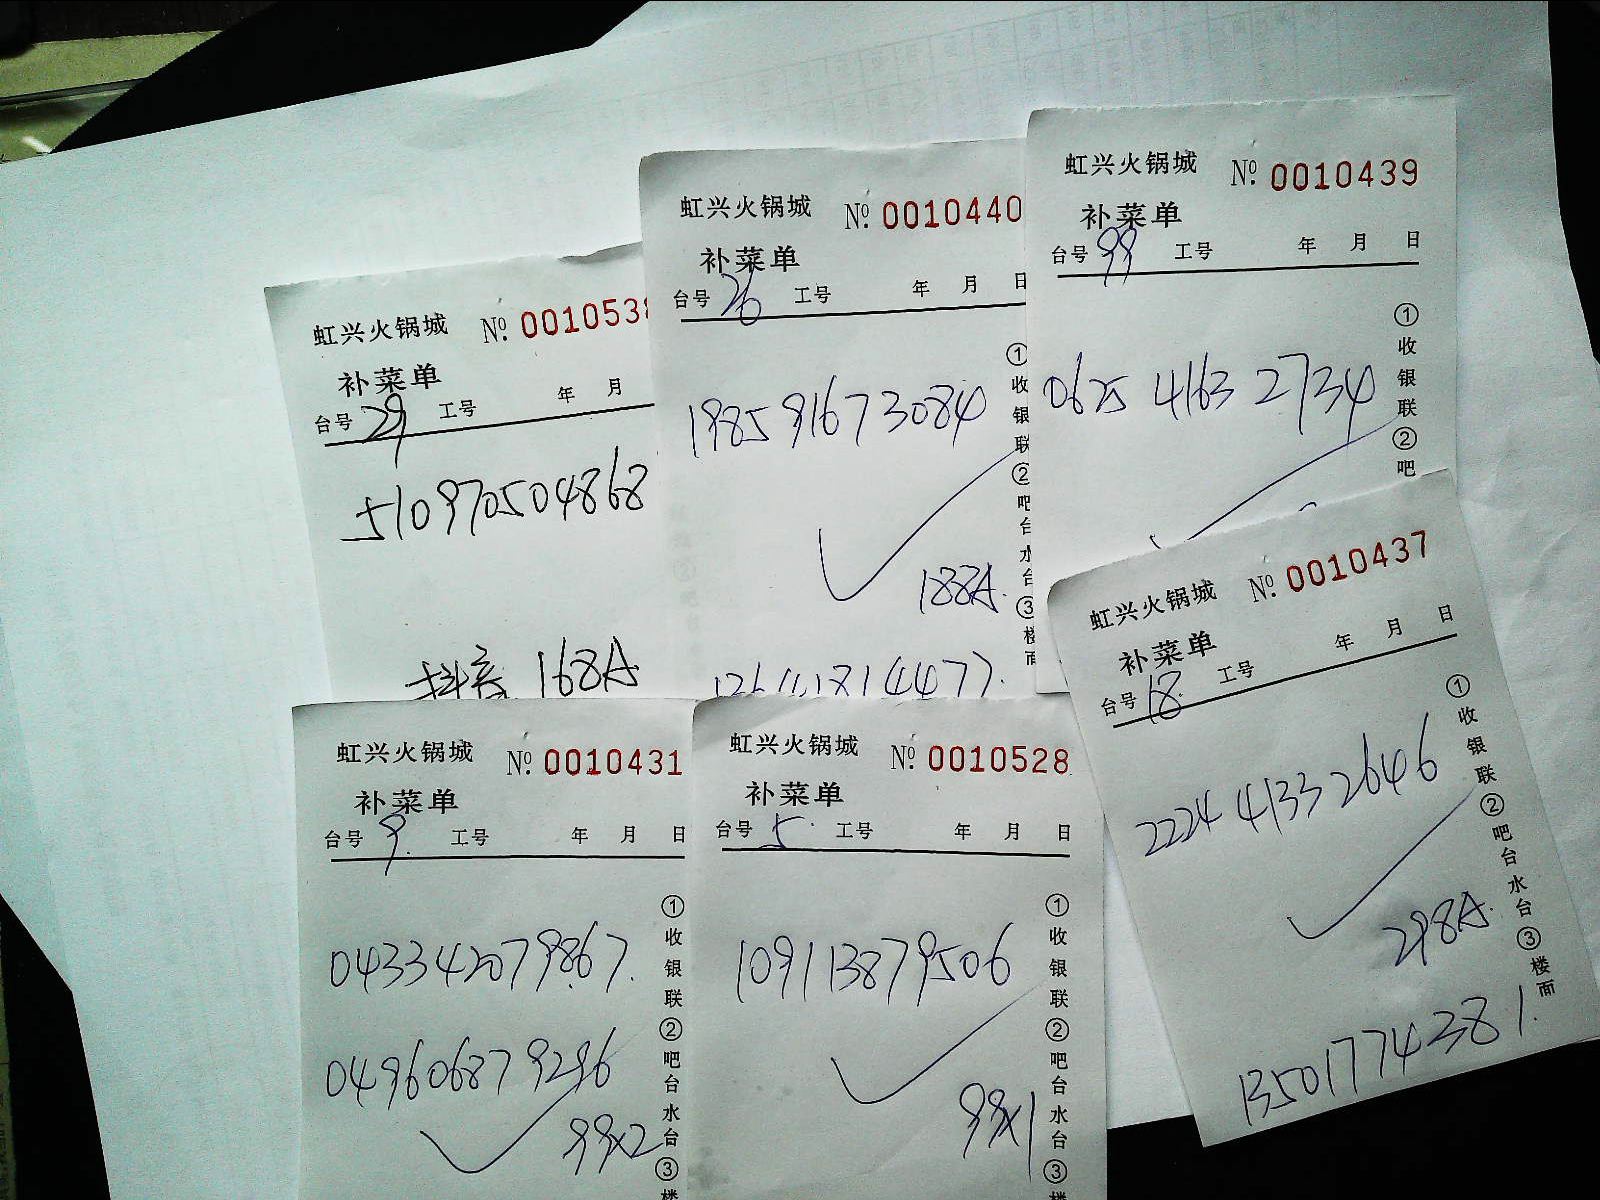 虹兴火锅城 №. 001053
补菜单
台号 29 工号 年 月
510970504868
抖音 168A
虹兴火锅城 №. 0010440
补菜单
台号 26 工号 年 月 日
198591673084
188A.
①收银联②吧台水台③楼面
虹兴火锅城 №. 0010439
补菜单
台号 99 工号 年 月 日
0625 4163 2734
①收银联②吧
虹兴火锅城 №. 0010431
补菜单
台号 9. 工号 年 月 日
043342079867.
049606879296
99x2
①收银联②吧台水台③楼
虹兴火锅城 №. 0010528
补菜单
台号 5. 工号 年 月 日
109113879506
99x1
①收银联②吧台水台③楼
虹兴火锅城 №. 0010437
补菜单
台号 18. 工号 年 月 日
2224 4133 2646
298A.
13501774381.
①收银联②吧台水台③楼面